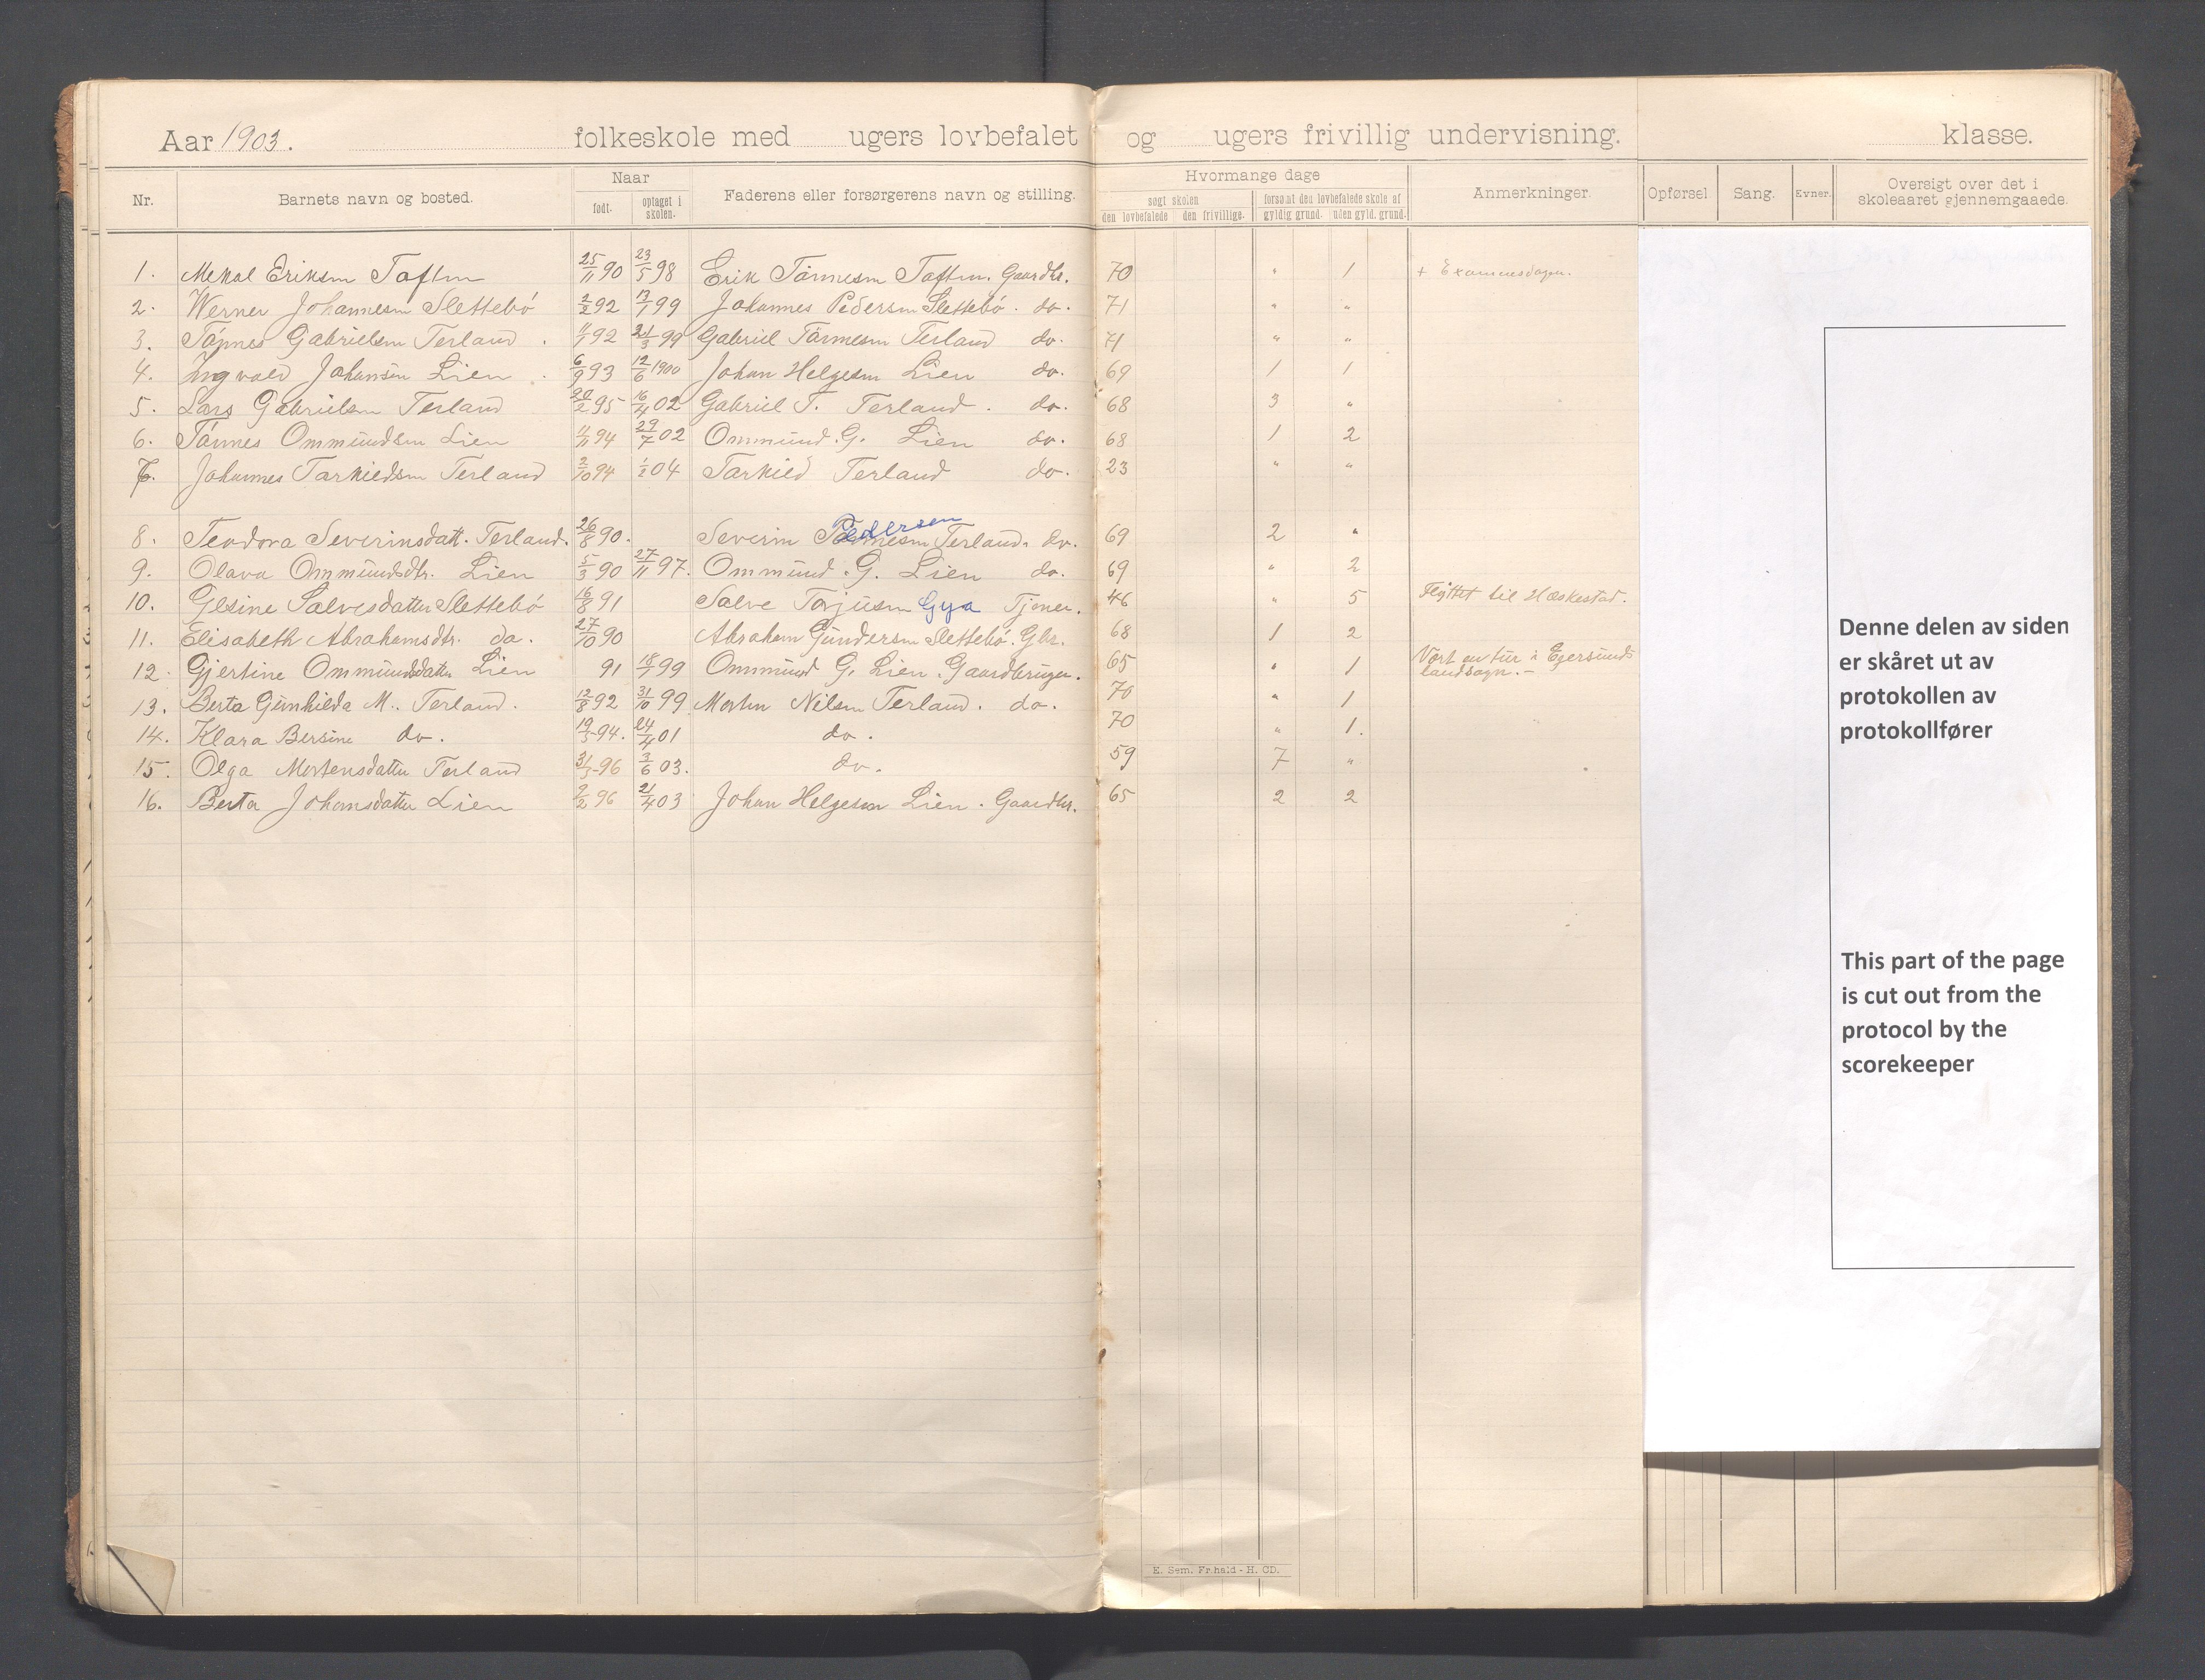 Aar 1903. folkeskole med ugers lovbefalet og ugers frivillig undervisning. klasse.
Nr. Barnets navn og bosted. Naar født. optaget i skolen. Faderens eller forsørgerens navn og stilling. Hvormange dage søgt skolen den lovbefalede den frivillige. forsømt den lovbefalede skole af gyldig grund. uden gyld. grund. Anmerkninger. Opførsel Sang. Evner. Oversigt over det i skoleaaret gjennemgaaede.
1. Mekal Eriksen 25/11 90 23/5 98 Erik Tönnesen Gaardbr. 70 " 1 + Examensdagen.
2. Werner Johannesen Slettebö 2/2 92 13/1 99 Johannes Pedersen Slettebö. do. 71 " "
3. Tönnes Gabrielsen Terland. 92 21/3 99 Gabriel Tönnesen Terland do. 71 " "
4. Ingvald Johansen Lien. 6/9 93 12/6 1900 Johan Helgesen Lien do. 69 1 1
5. Lars Gabrielsen Terland 20/2 95 16/4 02 Gabriel T. Terland. do. 68 3 "
6. Tönnes Ommundsen Lien 11/11 94 29/7 02 Ommund. G. Lien do. 68 1 2
7. Johannes Tarkieldsen Terland 2/10 94 1/2 04 Tarkild Terland do. 23 " "
8. Teodora Severinsdatt. Terland. 26/8 90. Severin Pedersen Terland. do. 69 2 "
9. Olava Ommundsdtr. Lien 5/3 90 27/11 97. Ommund. G. Lien do. 69 " 2
10. Gesine Salvesdatter Slettebö 16/8 91 Salve Torjusen Gya Tjener. 46 " 5 Flyttet til Heskestad.
11. Elisabeth Abrahamsdtr. do. 27/10 90 Abraham Gundersen Slettebö. Gbr. 68 1 2
12. Gjertine Ommundsdatter Lien 91 18/1 99 Ommund G. Lien. Gaardbruger. 65 " 1 Vært en tur i Egersunds landsogn. -
13. Berta Gunhilda M. Terland. 12/8 92 31/10 99 Morten Nilsen Terland. do. 70 " 1
14. Klara Bersine do. 19/5 94. 24/4 01 do. 70 " 1.
15. Olga Mortensdatter Terland 31/3 96 3/6 03. do. 59 7 "
16. Berta Johansdatter Lien 2/2 96 21/4 03 Johan Helgesen Lien. Gaardbr. 65 2 2
Denne delen av siden
er skåret ut av
protokollen av
protokollfører
This part of the page
is cut out from the
protocol by the
scorekeeper
E. Sem. Fr.hald - H. CD.